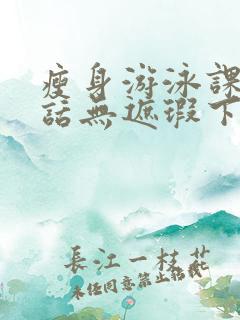 瘦身游泳課
話無遮瑕下
長江一枝花
未任同意禁止轉載